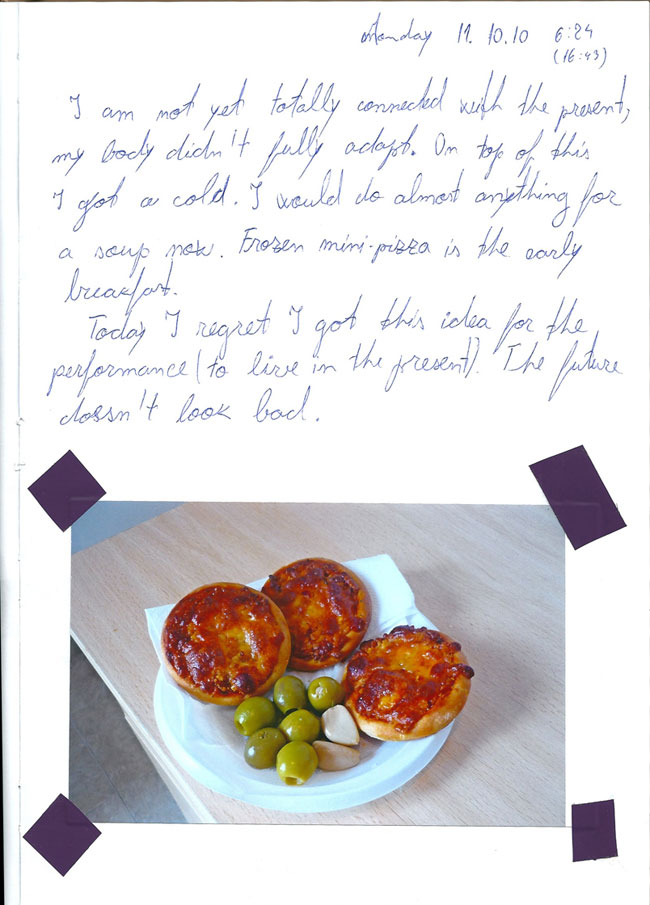 Monday 11. 10. 10 6:24
(16:43)
I am not yet totally connected with the present,
my body didn't fully adapt. On top of this
I got a cold. I would do almost anything for
a soup now. Frozen mini-pizza is the early
breakfast.
Today I regret I got this idea for the
performance (to live in the present). The future
doesn't look bad.